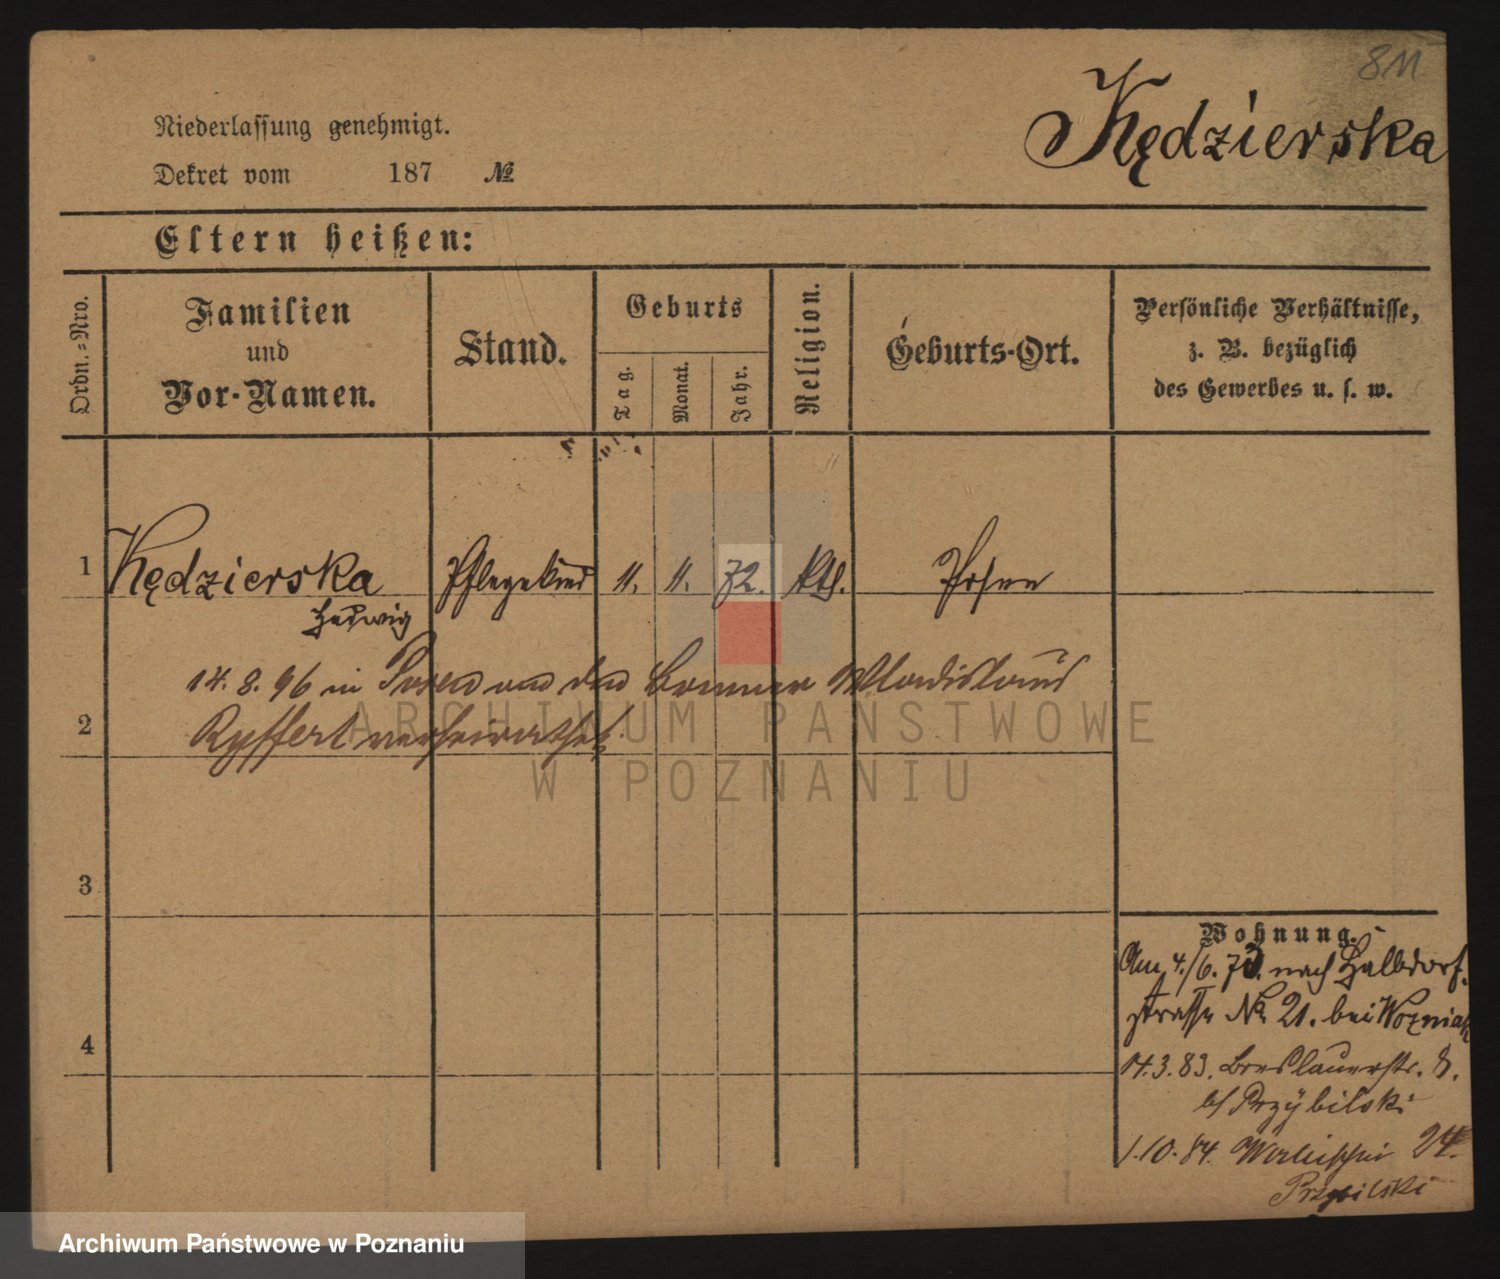 811
Kędzierska
Niederlassung genehmigt.
Dekret vom 187 №
Eltern heißen:
Ordn.-Nro.
Familien
und
Vor-Namen.
Stand.
Geburts
Tag.
Monat.
Jahr.
Religion.
Geburts-Ort.
Persönliche Verhältnisse,
z. B. bezüglich
des Gewerbes u. s. w.
1 Kędzierska Pflegekind 11. 11. 72. kth. Posen
Hedwig
14. 8. 96 in Posen Wladislaus
2 Ryffert verheirathet.
ARCHIWUM PAŃSTWOWE
W POZNANIU
3
4
Wohnung.
Am 4./6. nach Halbdorf
strasse No 21. bei Wozniak
14.3.83. Breslauerstr. 8.
b/ Przybilski
1.10.84. 24.
Przybilski
Archiwum Państwowe w Poznaniu